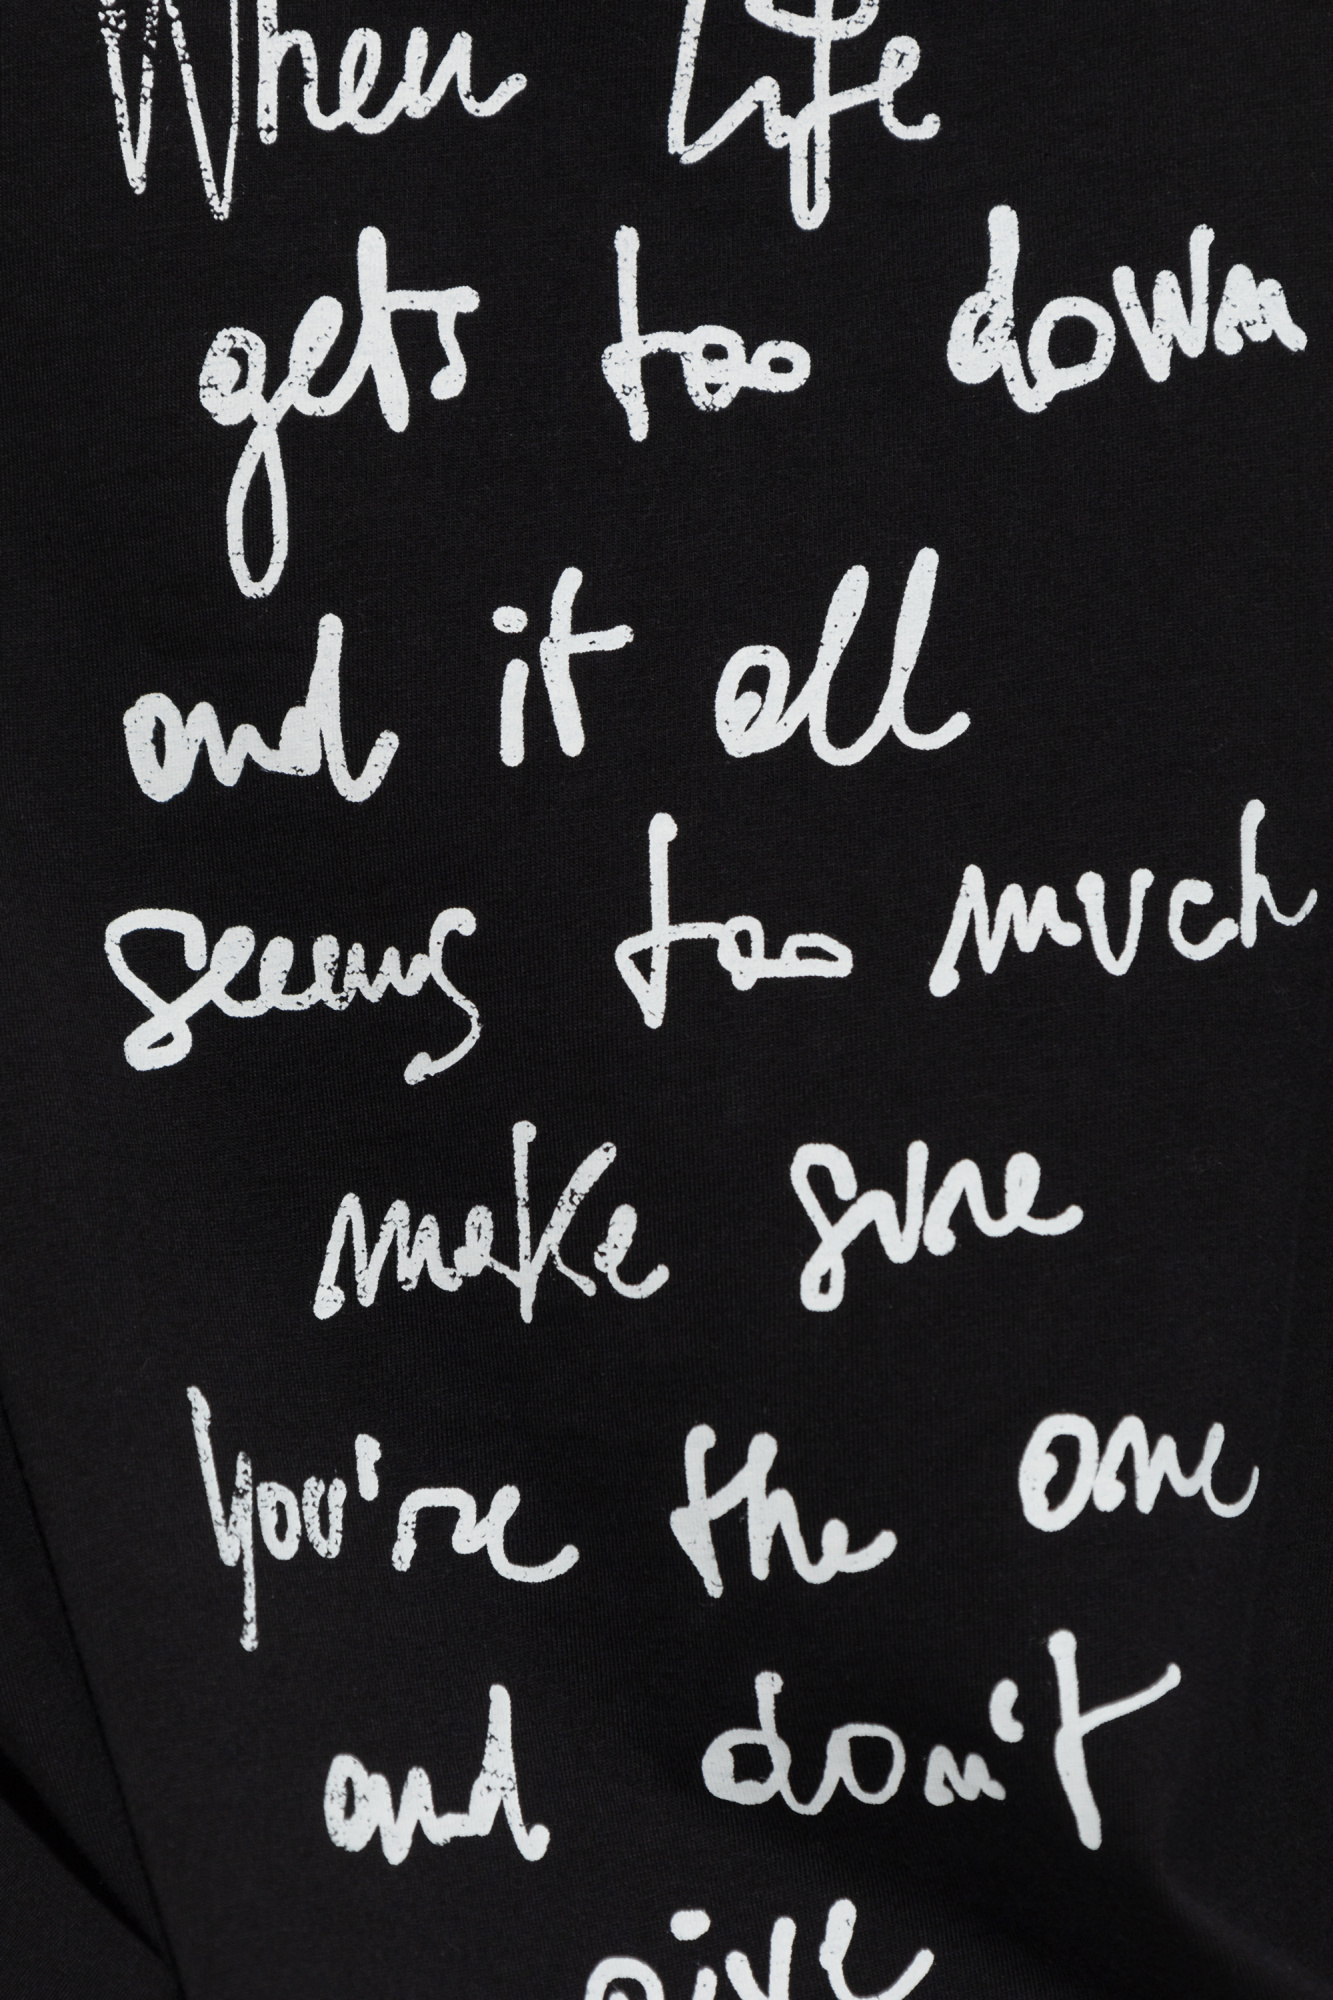 When Life
gets too down
and it all
seems too much
make sure
you're the one
and don't
give